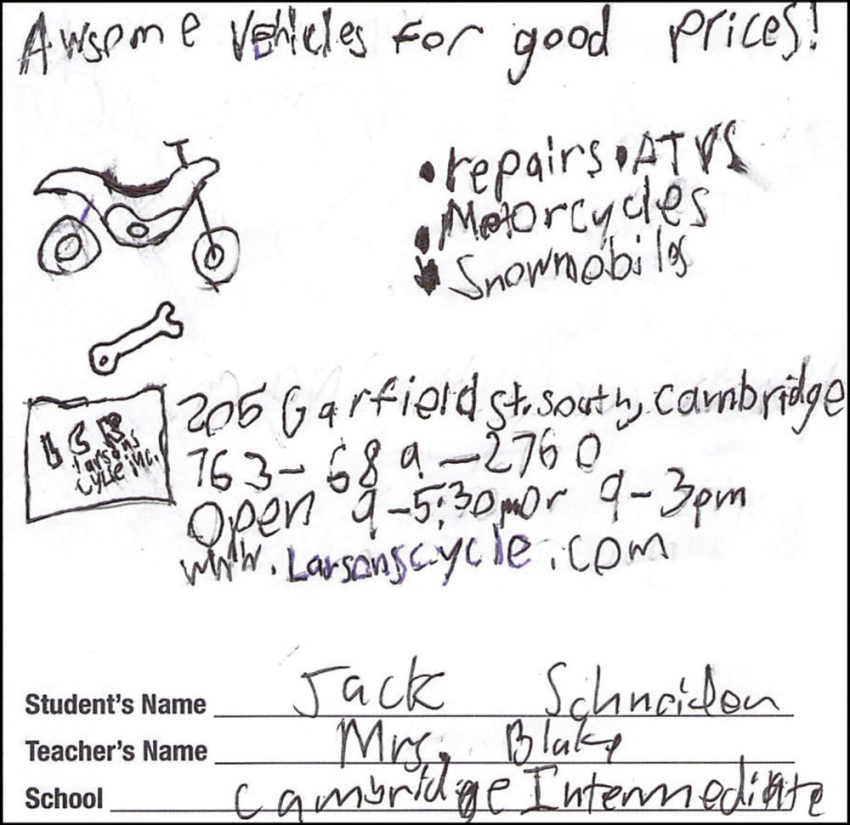 Awsome Vehicles for good prices!
• repairs • ATVS
• Motorcycles
• Snowmobils
205 Garfield st. south, Cambridge
763-689-2760
Open 9-5:30pm or 9-3pm
www.Larsonscycle.com
Larsons
Cycle inc.
Student's Name Jack
Teacher's Name Mrs. Blake
School Cambridge Intermediate